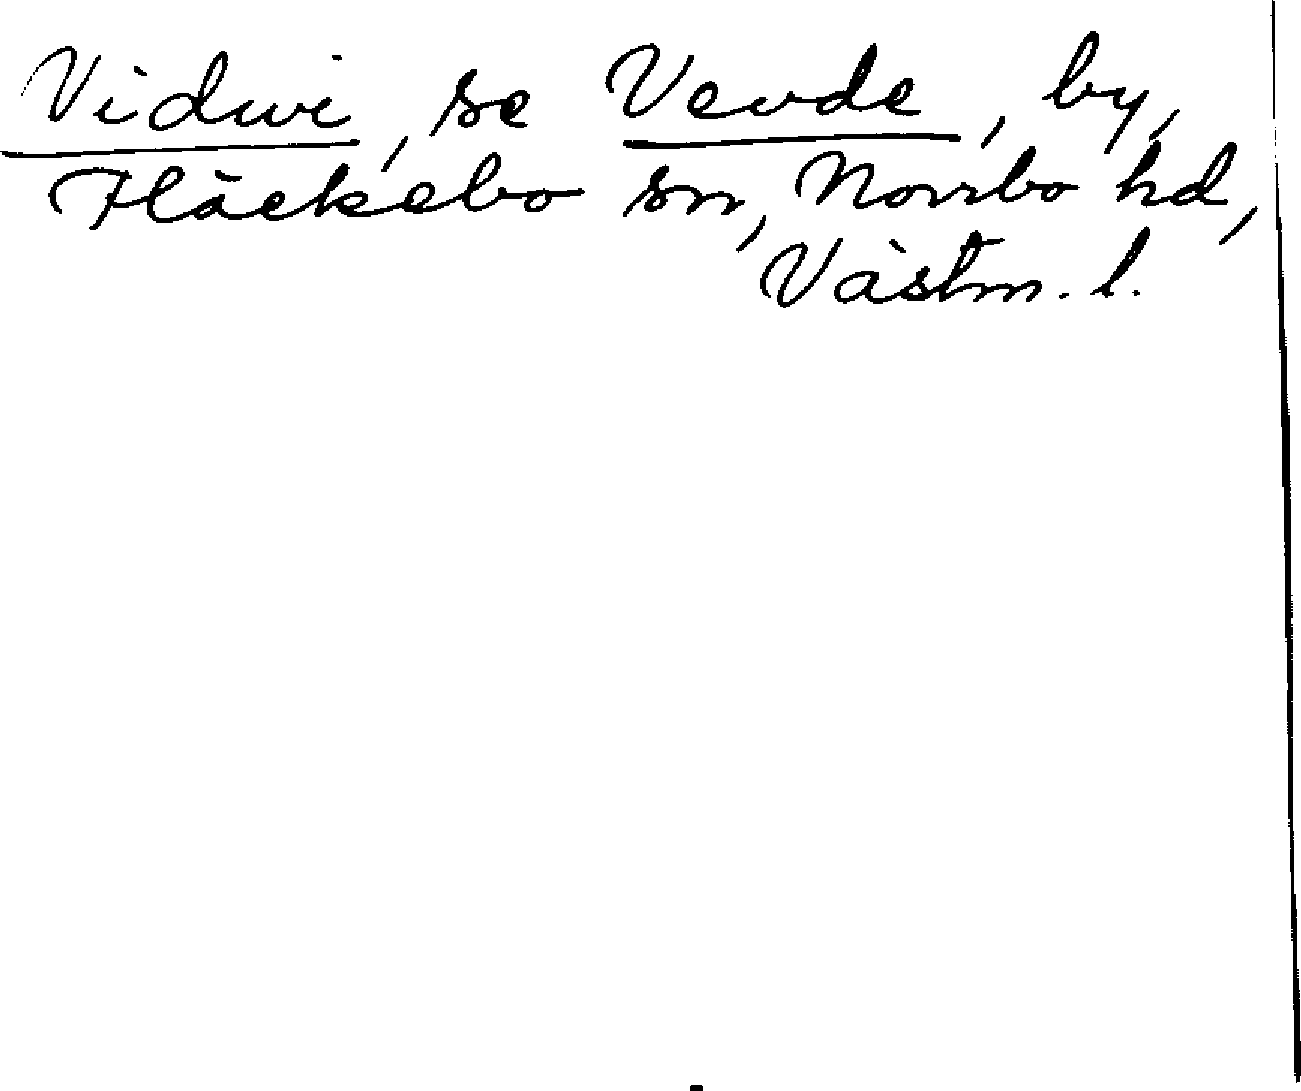 Vidwi, se Vevde, by,
Fläckebo sn, Norrbo hd,
Västm. l.